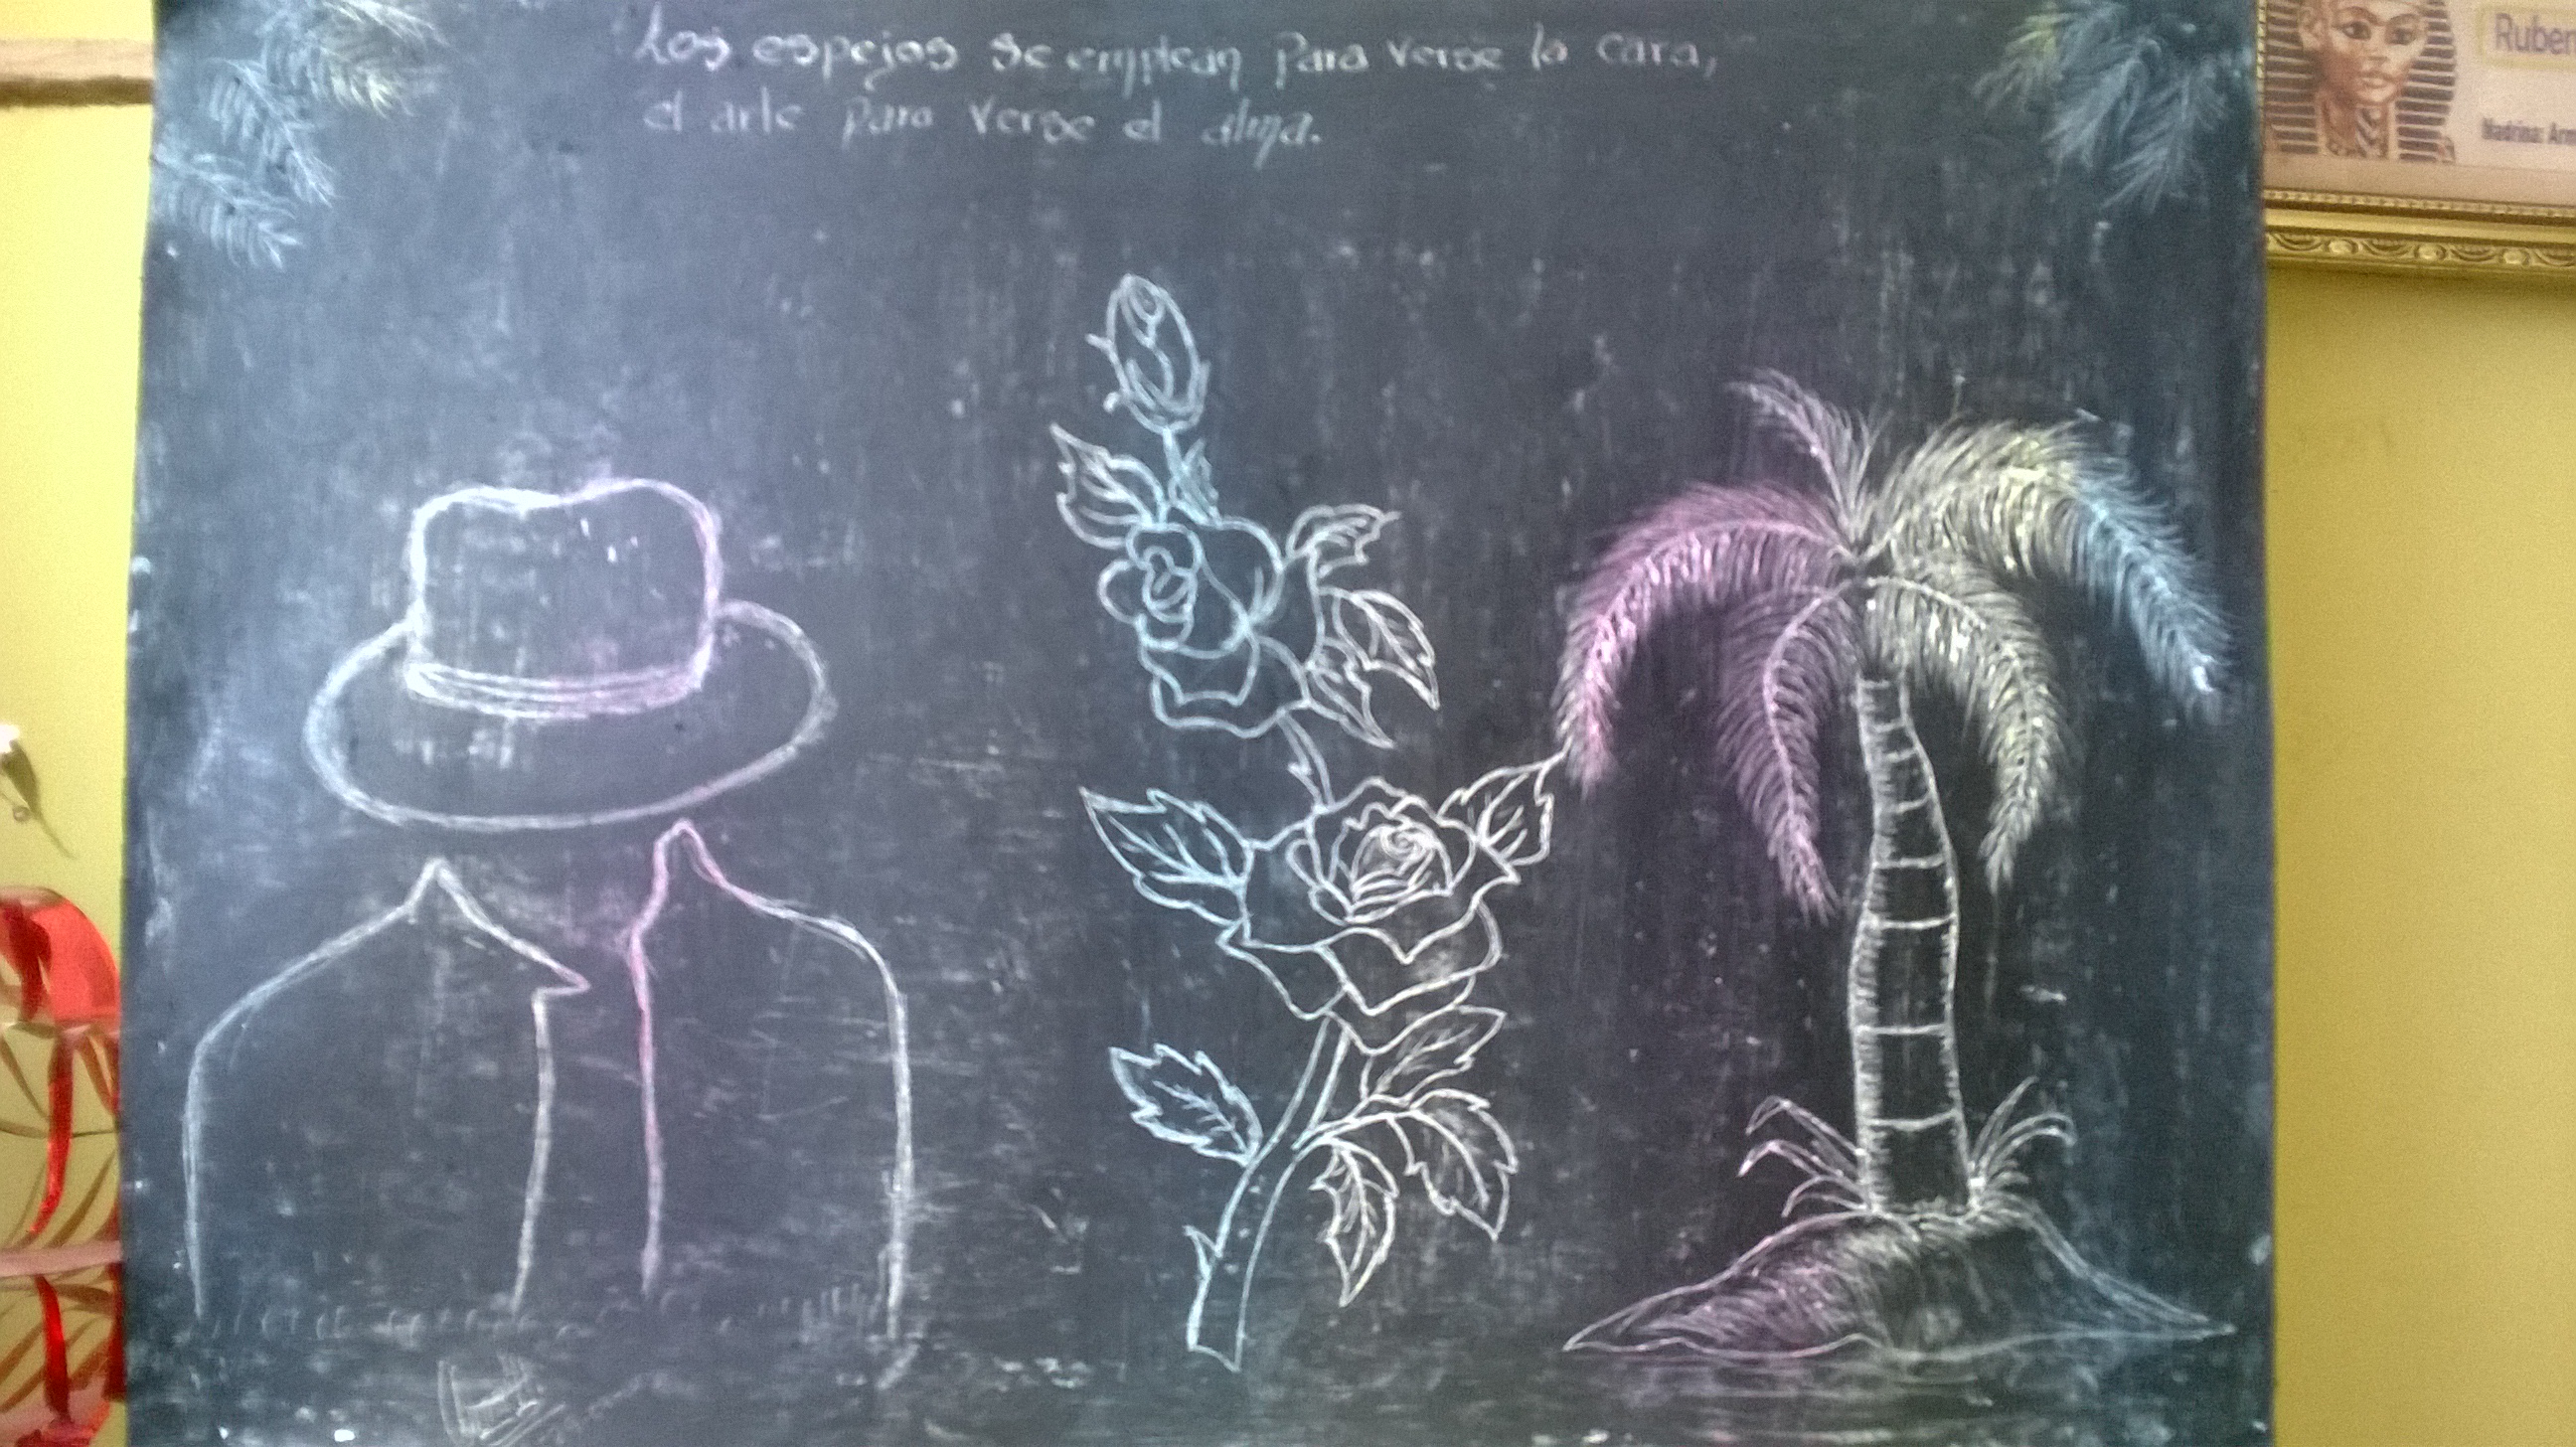 Los espejos se emplean para verse la cara,
el arte para verse el alma.
Ruben
Madrina: